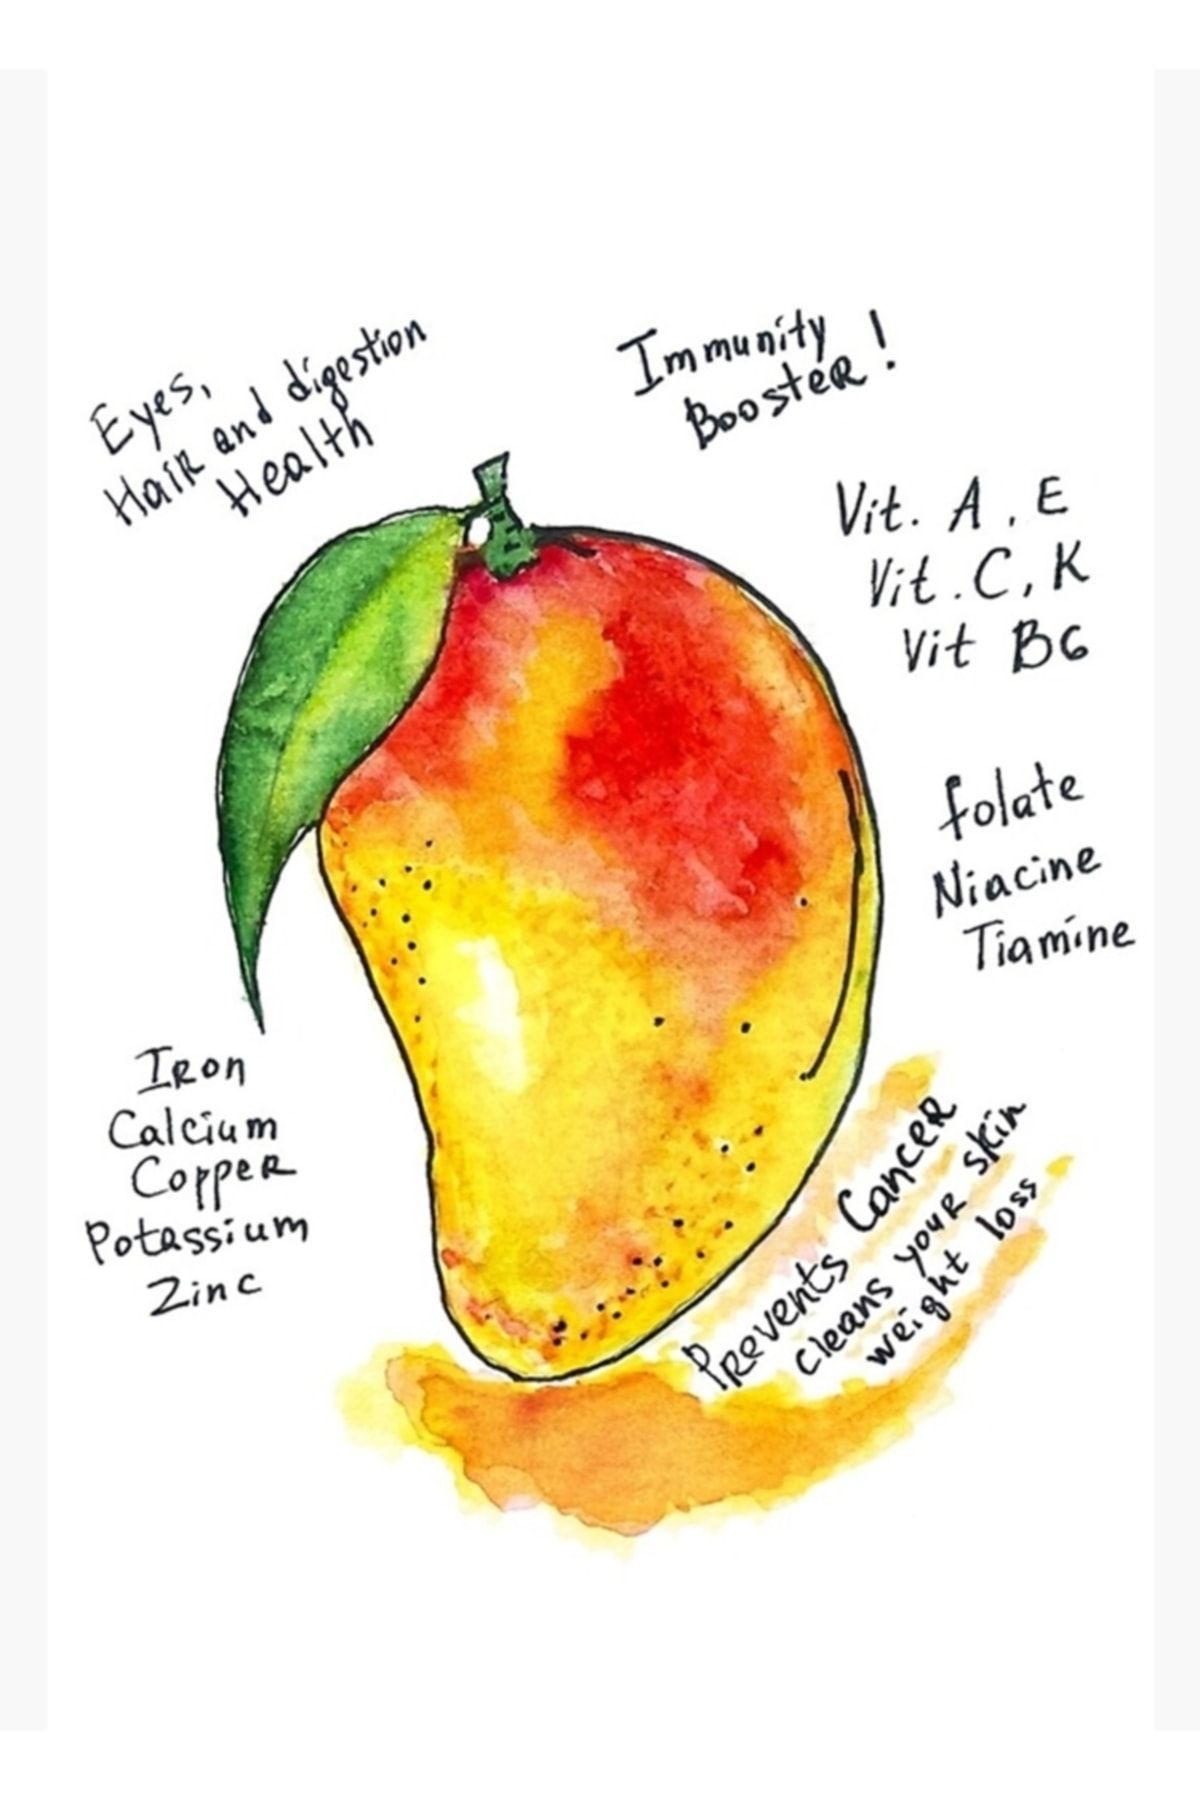 Eyes,
Hair and digestion
Health
Immunity
Booster!
Vit. A, E
Vit. C, K
Vit B6
folate
Niacine
Tiamine
Iron
Calcium
Copper
Potassium
Zinc
Prevents Cancer
cleans your skin
weight loss